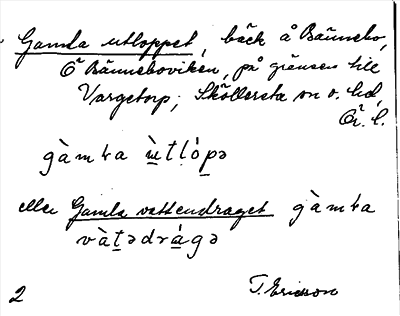 Gamla utloppet, bäck å Bännebo,
Ö Bänneboviken, på gränsen till
Vargetorp; Sköllersta sn o. hd,
Ör. l.
gàmɬa ùtḷópə
eller Gamla vattendraget gàmɬa
vàtədrágə
2 T. Ericsson